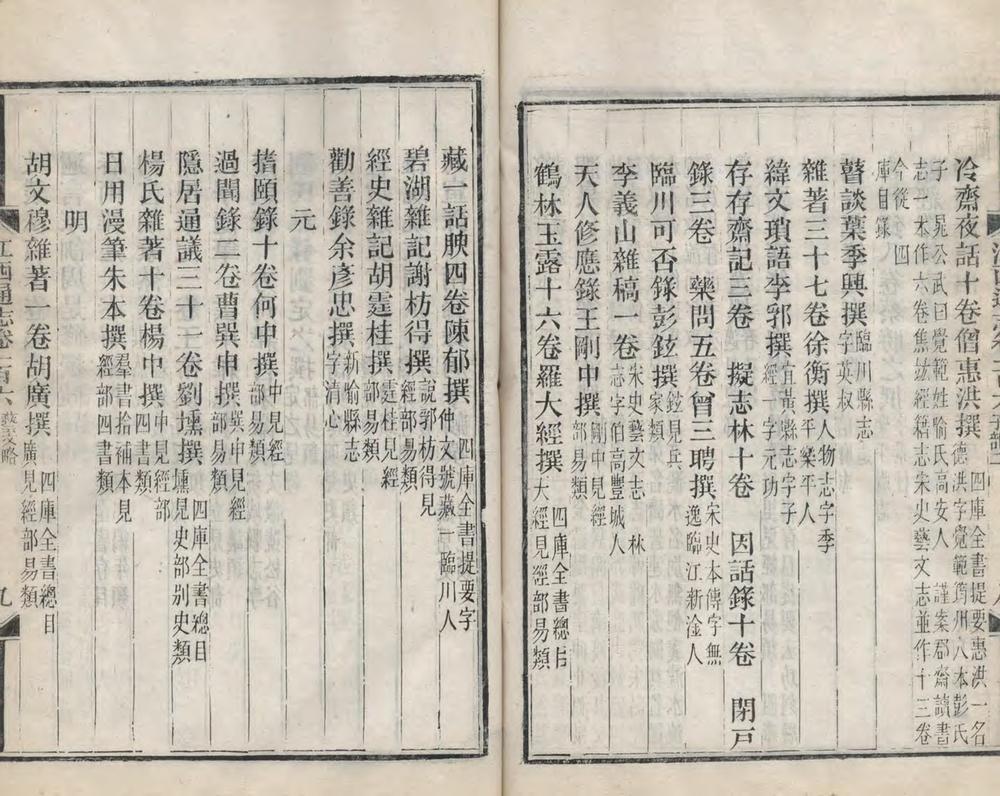 冷齋夜話十卷僧惠洪撰四庫全書提要惠洪一名德洪字覺範筠州人本彭氏
子 晁公武曰覺範姓喻氏高安人 謹案郡齋讀書
志一本作六卷焦竑經籍志宋史藝文志並作十三卷
今從四庫目錄
瞽談葉季興撰臨川縣志字英叔
雜著三十七卷徐衡撰人物志字季平樂平人
緯文瑣語李郛撰宜黃縣志字子經一字元功
存存齋記三卷 擬志林十卷 因話錄十卷 閉戸
錄三卷 藥問五卷曾三聘撰宋史本傳字無逸臨江新淦人
臨川可否錄彭鉉撰鉉見兵家類
李義山雜稿一卷宋史藝文志 林志字伯高豐城人
天人修應錄王剛中撰剛中見經部易類
鶴林玉露十六卷羅大經撰四庫全書總目 大經見經部易類
藏一話腴四卷陳郁撰四庫全書提要字仲文號藏一臨川人
碧湖雜記謝枋得撰說郛枋得見經部易類
經史雜記胡霆桂撰霆桂見經部易類
勸善錄余彥忠撰新喻縣志字清心
元
搘頤錄十卷何中撰中見經部易類
過聞錄二卷曹巽申撰巽申見經部易類
隱居通議三十一卷劉壎撰四庫全書總目壎見史部別史類
楊氏雜著十卷楊中撰中見經部四書類
日用漫筆朱本撰羣書拾補本見經部四書類
明
胡文穆雜著一卷胡廣撰四庫全書總目廣見經部易類
江西通志卷一百六 藝文略 九